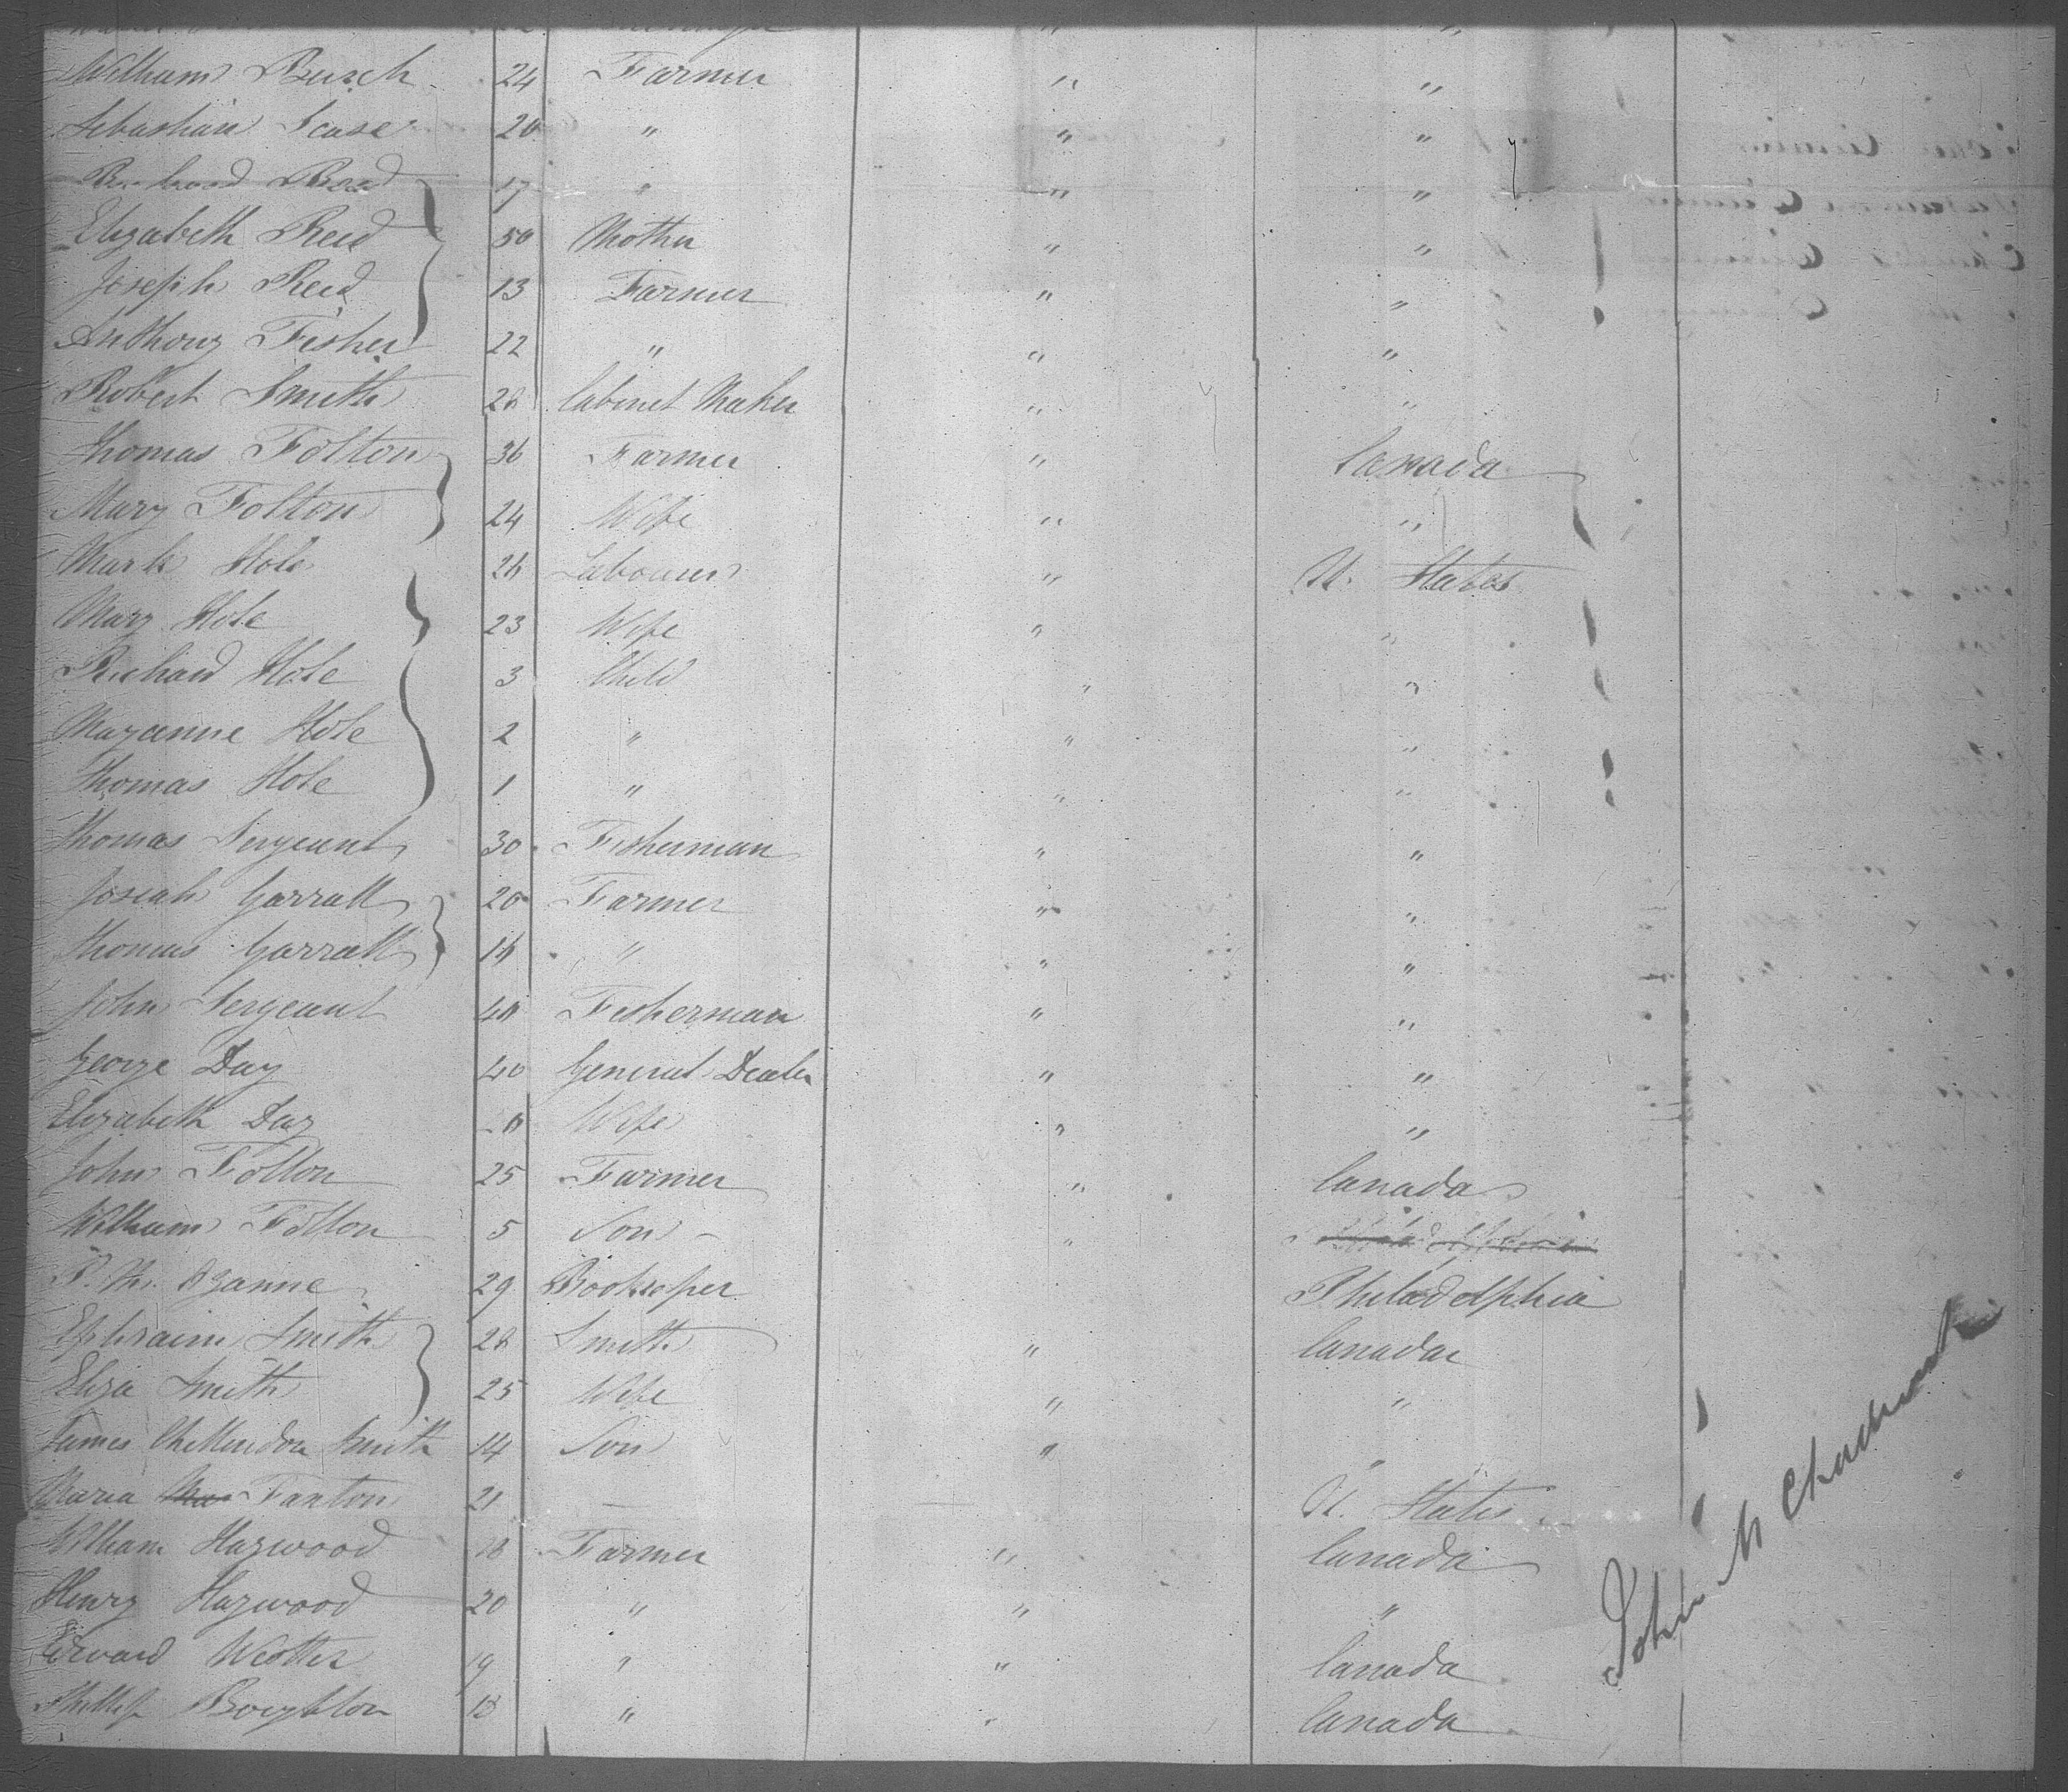 William Busch 24 Farmer " "
Sebastian 20 " " "
17 " " "
Elizabeth Reid 50 Mother " "
Joseph Reid 13 Farmer " "
Anthony Fisher 22 " " "
Robert Smith 28 Cabinet Maker " "
Thomas Folton 36 Farmer " Canada
Mary Folton 24 Wife " "
Mark Hole 26 Labourer " U. States
Mary Hole 23 Wife " "
Richard Hole 3 Child " "
Maryanne Hole 2 " " "
Thomas Hole 1 " " "
Thomas Sergeant 30 Fisherman " "
Josiah Garratt 20 Farmer " "
Thomas Garratt " " "
John Sergeant Fisherman " "
George Day 40 General Dealer " "
Elizabeth Day Wife " "
John Folton 25 Farmer " Canada
William Folton 5 Son "
29 Bookkeeper Philadelphia
Ephraim Smith 28 Smith " Canada
Eliza Smith 25 Wife " "
James Smith 14 Son " "
Maria Fanton 21 — U. States
William Haywood 18 Farmer " Canada
Henry Haywood 20 " " "
Edward 19 " " Canada
Boughton 18 " " Canada
John M